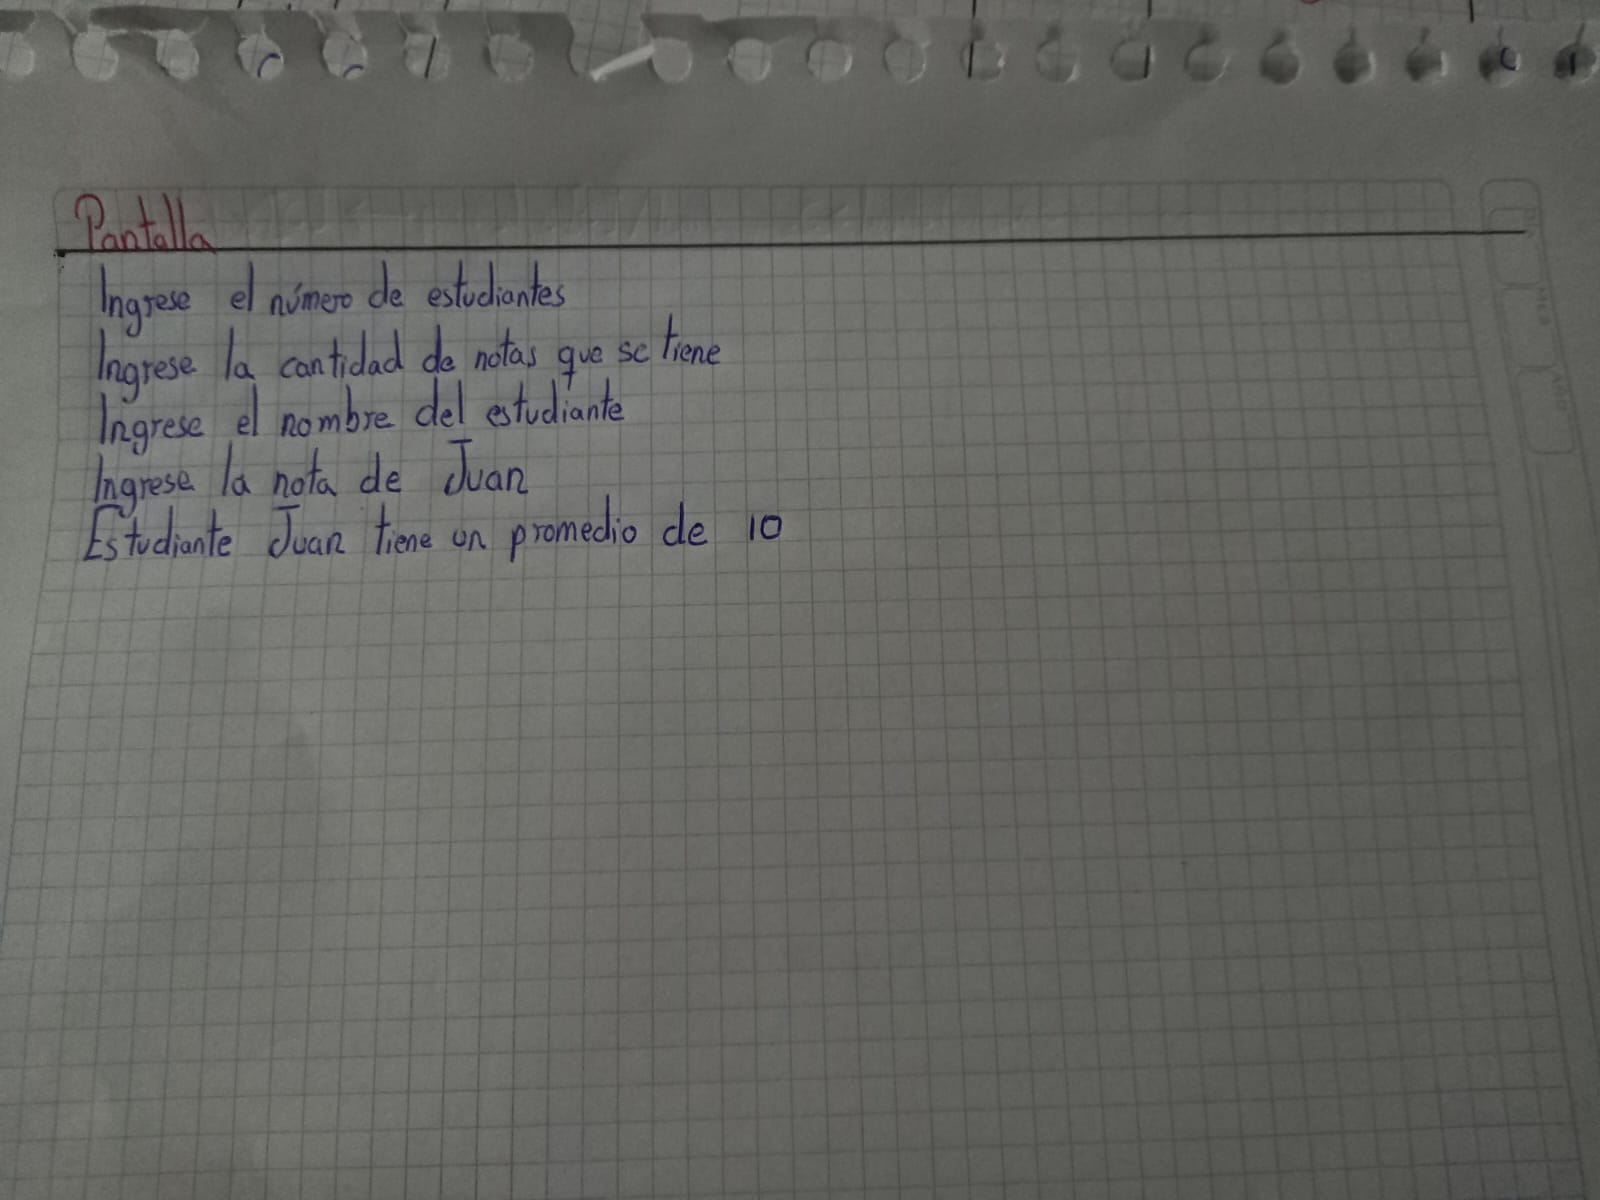 Pantalla
Ingrese el número de estudiantes
Ingrese la cantidad de notas que se tiene
Ingrese el nombre del estudiante
Ingrese la nota de Juan
Estudiante Juan tiene un promedio de 10